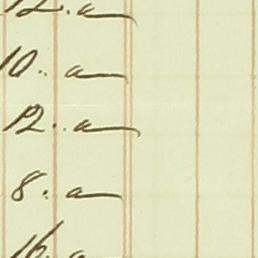 12. a
10.. a
12.. a
8. a
16. a